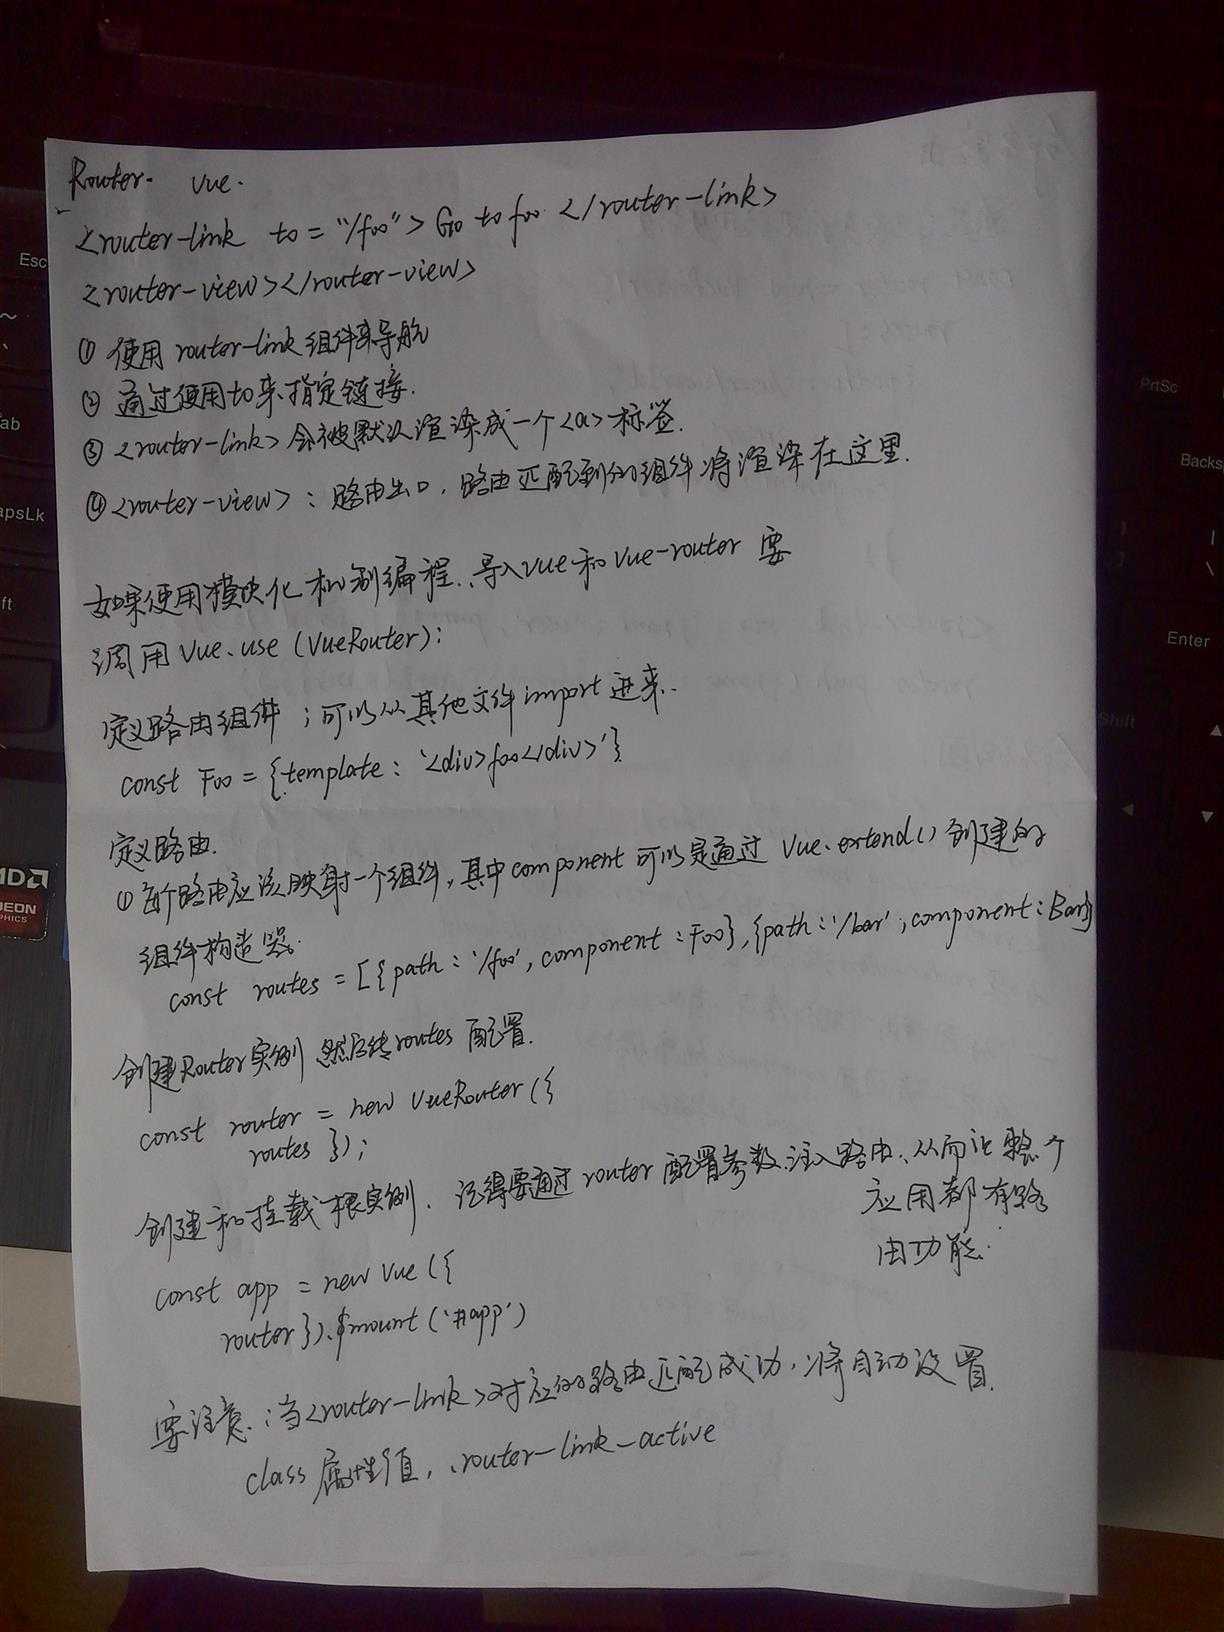 Router. Vue.
<router-link to = "/foo"> Go to foo </router-link>
<router-view></router-view>
① 使用 router-link 组件来导航
② 通过使用to来指定链接.
③ <router-link> 会被默认渲染成一个<a>标签.
④ <router-view> : 路由出口. 路由匹配到的组件将渲染在这里.
如果使用模块化机制编程.,导入Vue和Vue-router 要
调用 Vue.use (VueRouter);
定义路由组件 ; 可以从其他文件import 进来..
const Foo = {template : '<div>foo</div>'}
定义路由.
① 每个路由应该映射一个组件, 其中component 可以是通过 Vue.extend() 创建的
组件构造器.
const routes = [{path : '/foo', component : Foo}, {path : '/bar', component : Bar}
创建Router实例 然后传routes 配置.
const router = new VueRouter ({
routes });
创建和挂载根实例. 记得要通过 router 配置参数注入路由、从而让整个
应用都有路
由功能.
const app = new Vue ({
router }).$mount ('#app')
要注意.: 当<router-link>对应的路由匹配成功, 将自动设置.
class 属性值, .router-link-active
Esc
Tab
CapsLk
Shift
AMD
RADEON
GRAPHICS
PrtSc
Backs
Enter
Shift